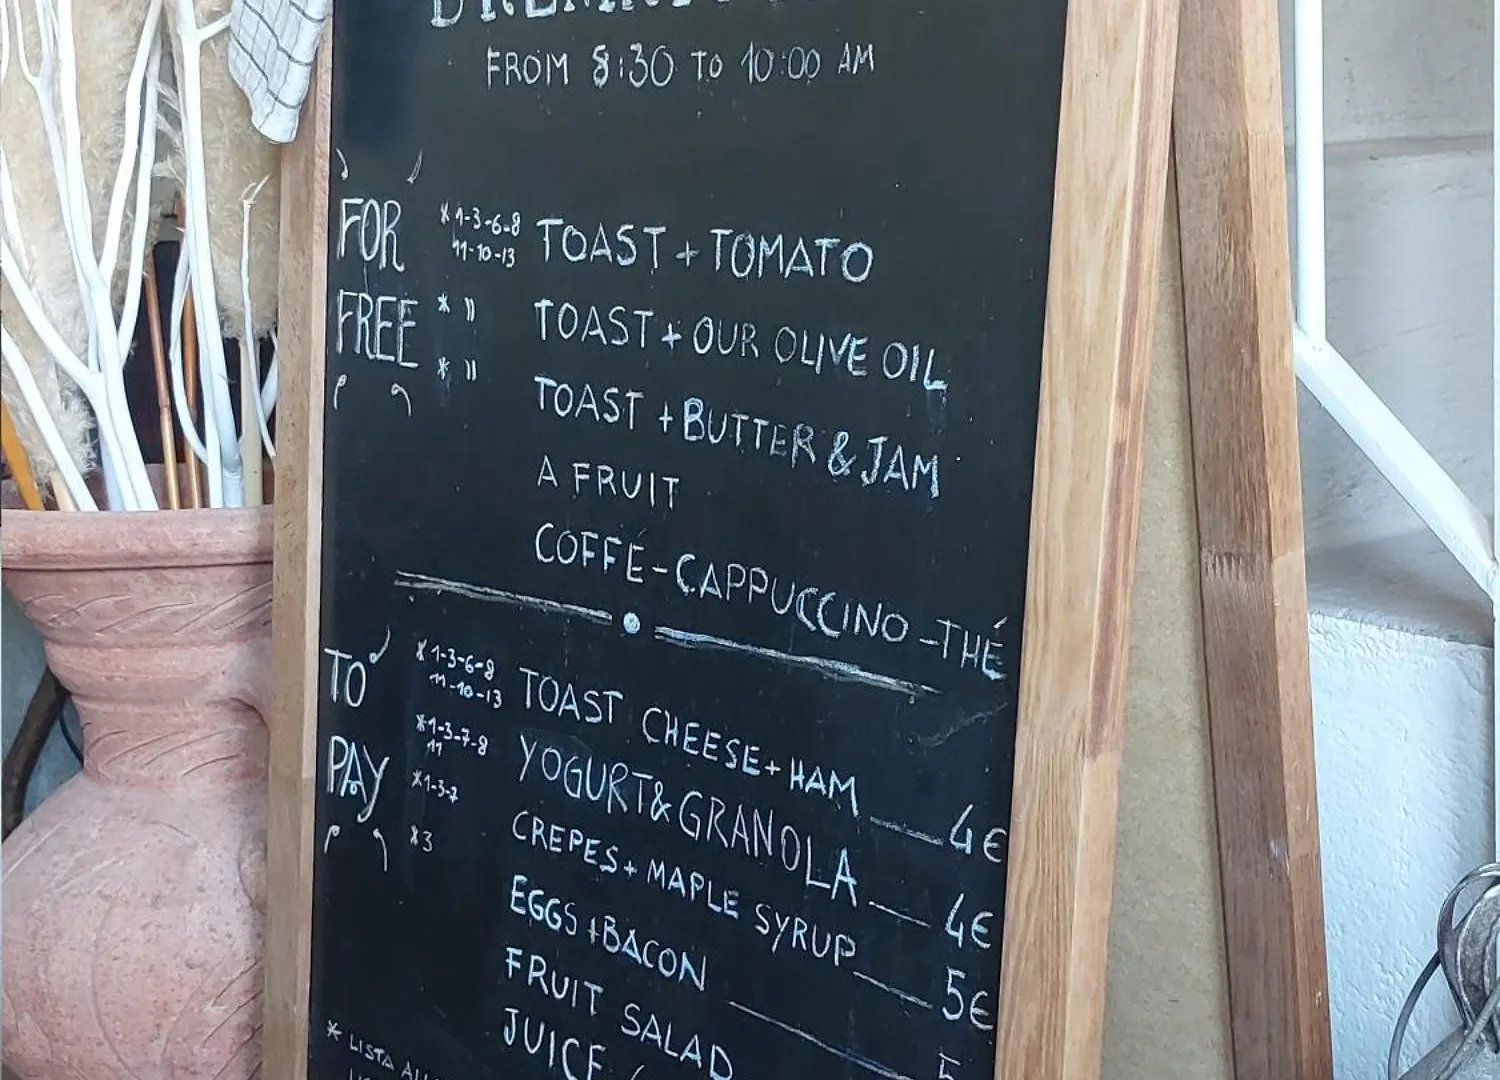 FROM 8:30 TO 10:00 AM
FOR FREE
*1-3-6-8
11-10-13
TOAST + TOMATO
* 〃 TOAST + OUR OLIVE OIL
* 〃 TOAST + BUTTER & JAM
A FRUIT
COFFÉ - CAPPUCCINO - THÉ
TO PAY
*1-3-6-8
11-10-13
TOAST CHEESE + HAM 4€
*1-3-7-8
11
YOGURT & GRANOLA 4€
*1-3-7 CREPES + MAPLE SYRUP 5€
*3 EGGS + BACON 5
FRUIT SALAD
JUICE
* LISTA